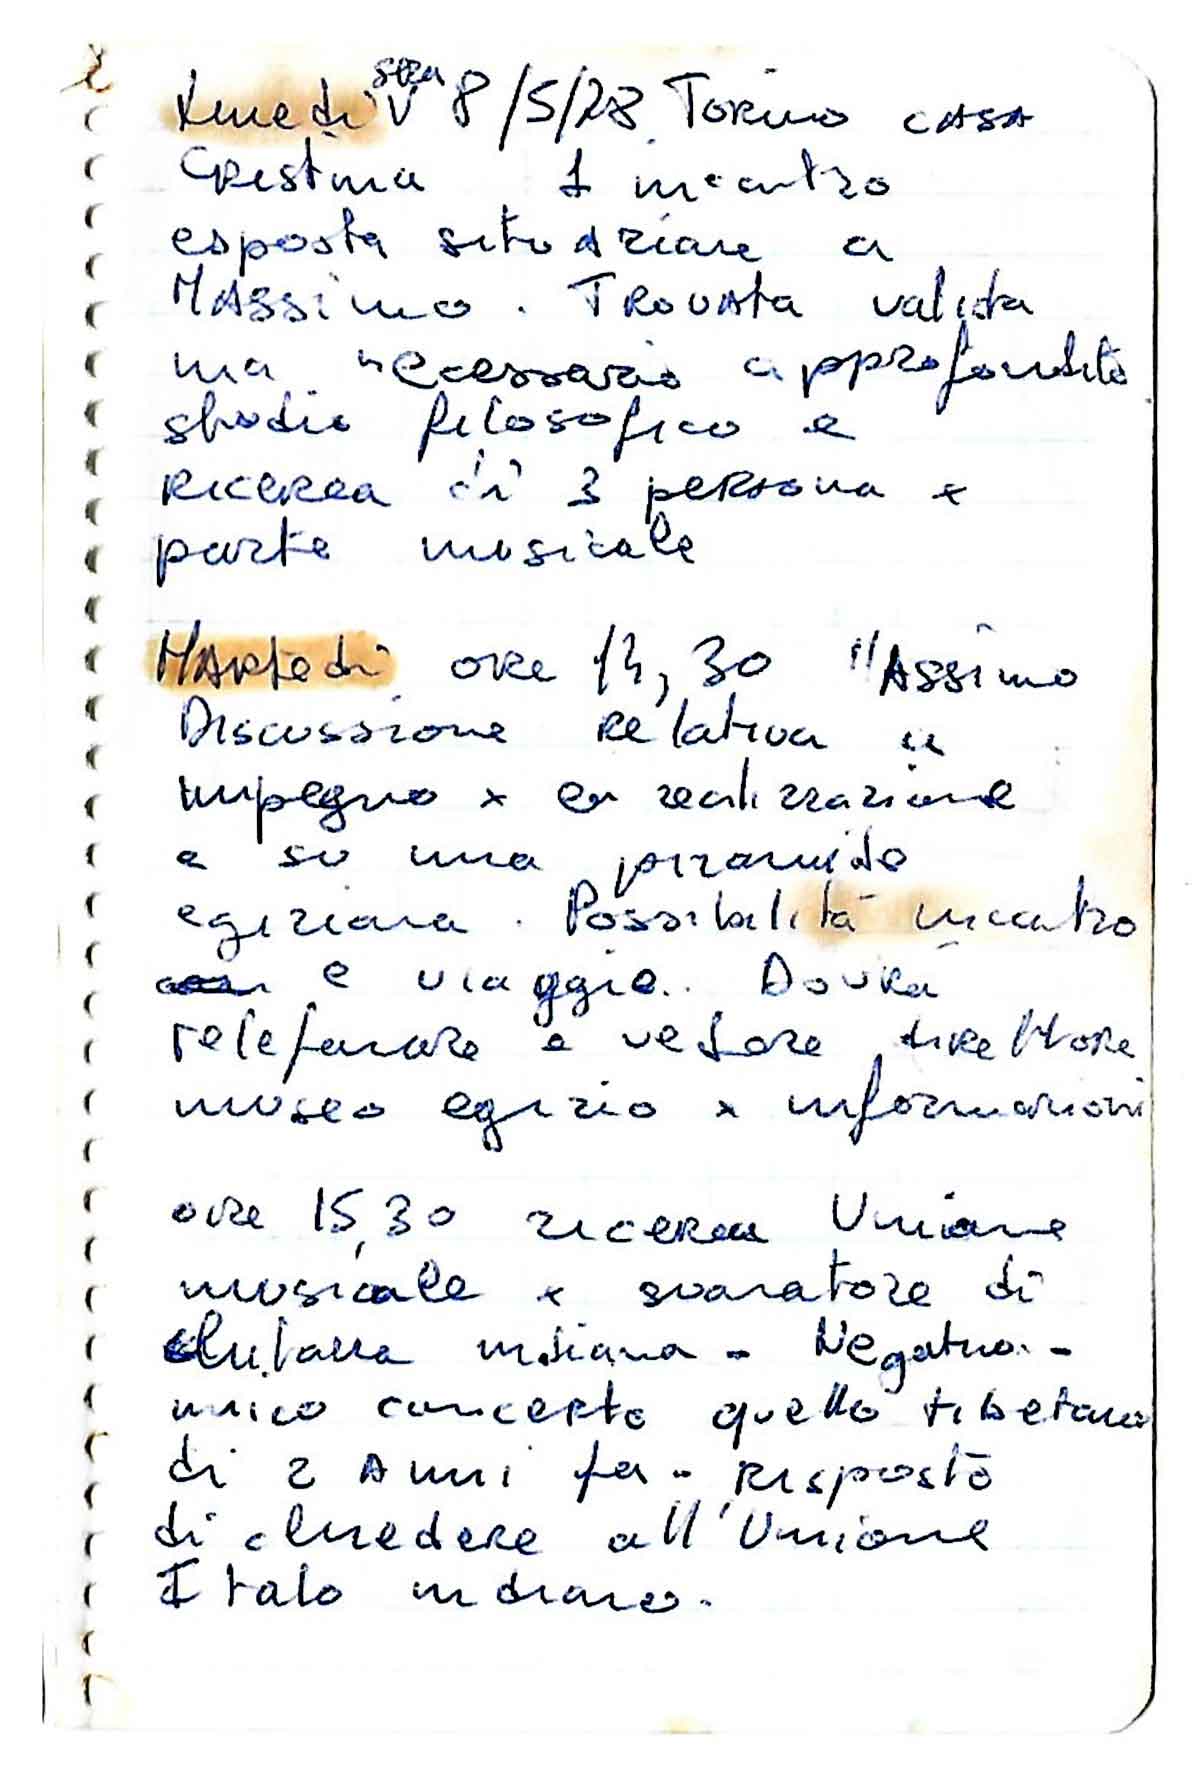 Lunedì sera 8/5/78 Torino CASA
Cristina 1 incontro
esposta situazione a
MAssimo. TROVAta valida
ma necessario approfondito
studio filosofico e
RICERCA di 3 persona x
parte musicale
MARtedì ore 14,30 MAssimo
Discussione Relativa a
impegno x la realizzazione
e su una piramide
egiziana. Possibilità incontro
e viaggio. Dovrà
telefonare e vedere direttore
museo egizio x informazioni
ore 15,30 ricerca Unione
musicale x suonatore di
chitarra indiana - Negativa -
unico concerto quello tibetano
di 2 Anni fa - Risposto
di chiedere all'Unione
Italo indiano.